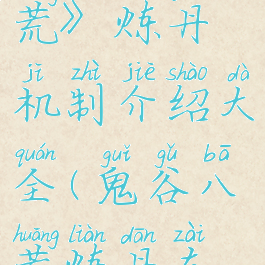 荒》炼丹
jī zhì jiè shào dà
机制介绍大
quán guǐ gǔ bā
全(鬼谷八
huāng liàn dān zài
荒炼丹在